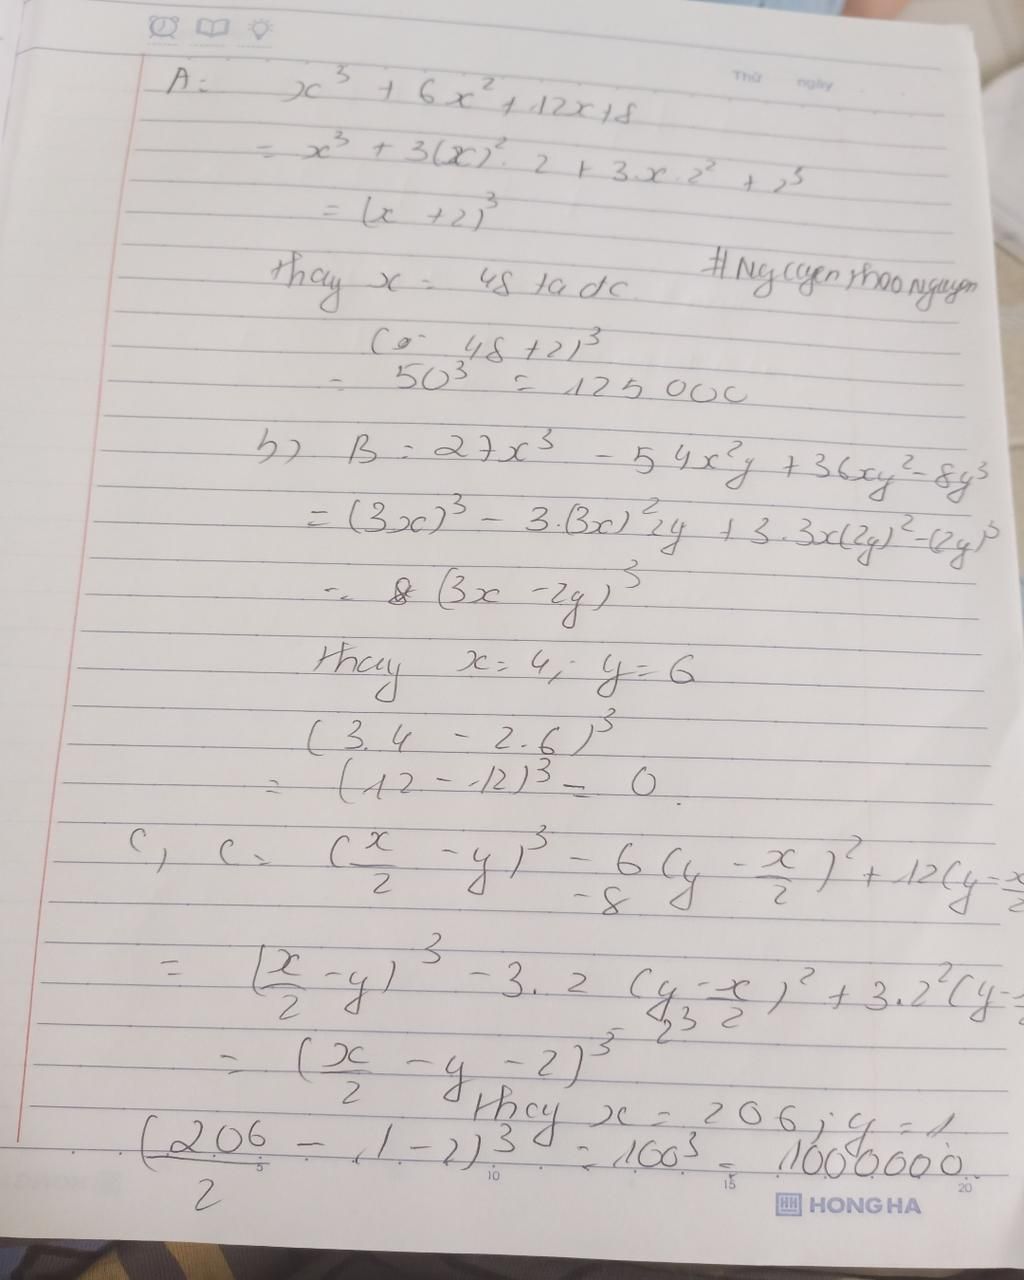 Thứ ngày
A = x³ + 6x² + 12x + 8
= x³ + 3(x)². 2 + 3.x.2² + 2³
= (x + 2)³
thay x = 48 ta dc #Nguyenthaonguyen
48 + 2)³
= 50³ = 125 000
b) B = 27x³ - 54x²y + 36xy² - 8y³
= (3x)³ - 3.(3x)²2y + 3.3x(2y)² - (2y)³
= (3x - 2y)³
thay x = 4; y = 6
(3.4 - 2.6)³
= (12 - 12)³ = 0.
C, C = (x/2 - y)³ - 6(y - x/2)² + 12(y - x/2
- 8
= (x/2 - y)³ - 3. 2 (y - x/2)² + 3.2²(y -
- 2³
= (x/2 - y - 2)³
thay x = 206; y = 1
(206/2 - 1 - 2)³ = 100³ = 1000000
5 10 15 20
HONG HA